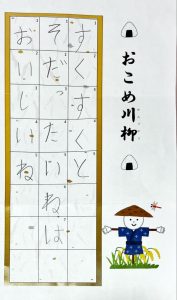 おこめ川柳
すくすくと
そだったいねは
おいしいね